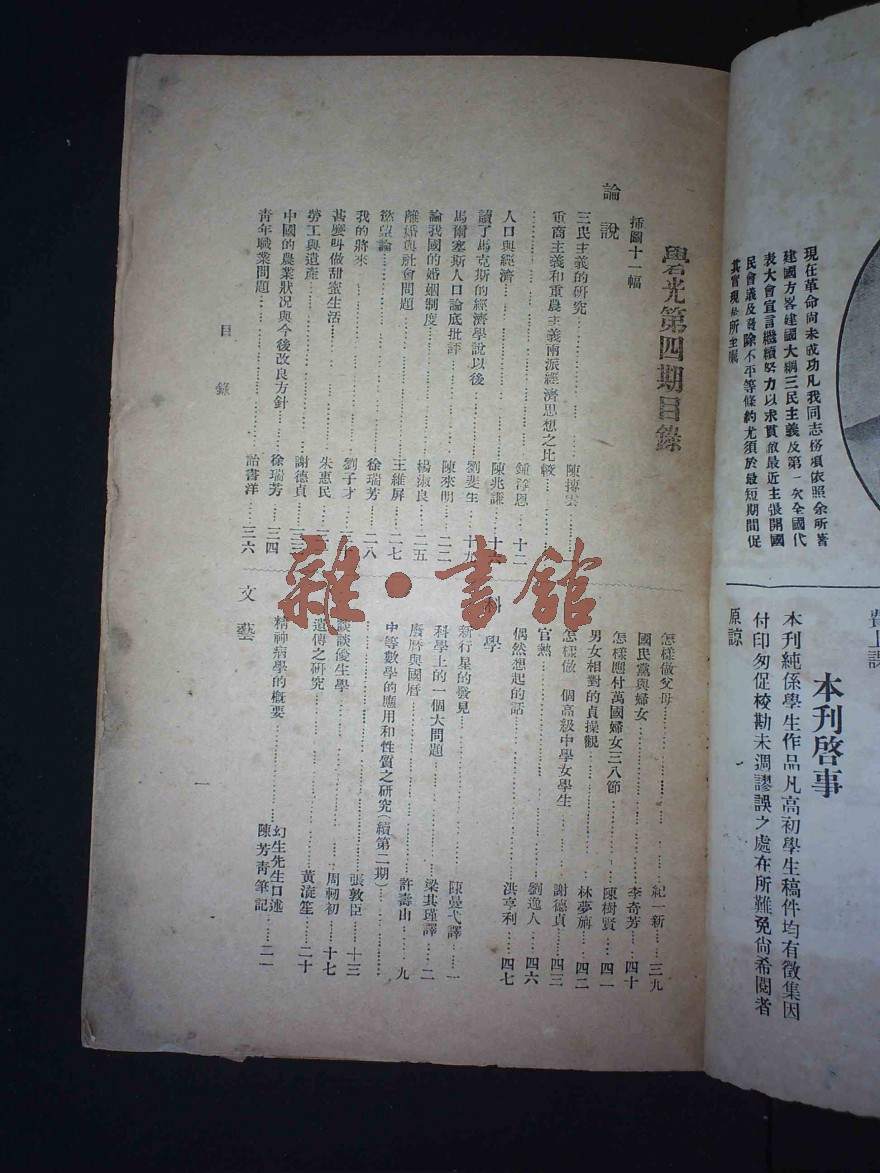 現在革命尚未成功凡我同志務須依照余所著
建國方畧建國大綱三民主義及第一次全國代
表大會宣言繼續努力以求貫澈最近主張開國
民會議及廢除不平等條約尤須於最短期間促
其實現是所至囑
本刋啓事
本刋純係學生作品凡高初學生稿件均有徵集因
付印匆促校勘未週謬誤之處在所難免尙希閱者
原諒
學光第四期目錄
揷圖十一幅
論說
三民主義的研究 陳摶雲
重商主義和重農主義兩派經濟思想之比較
鍾淳恩 十二
人口與經濟 陳兆謙
讀了馬克斯的經濟學說以後 劉斐生 十九
馬爾塞斯人口論底批評 陳來明 二二
論我國的婚姻制度 楊淑良 二五
離婚與社會問題 王維屏 二七
慾望論 徐瑞芳 二八
我的將來 劉子才
甚麼叫做甜蜜生活 朱惠民
勞工與遺產 謝德貞 三三
中國的農業狀況與今後改良方針 徐瑞芳 三四
靑年職業問題 詒書洋 三六
怎樣做父母 紀一新 三九
國民黨與婦女 李奇芳 四十
怎樣應付萬國婦女三八節 陳樹賢 四一
男女相對的貞操觀 林夢旃 四二
怎樣做一個高級中學女學生 謝德貞 四三
官熱 劉逸人 四六
偶然想起的話 洪亨利 四七
科學
新行星的發見 陳曼弋譯 一
科學上的一個大問題 梁其瑾譯 二
廢曆與國曆 許壽山 九
中等數學的應用和性質之研究(續第二期)
張敦臣 十三
談談優生學 周軔初 十七
遺傳之研究 黃淀笙 二十
精神病學的概要 幻生先生口述 陳芳靑筆記 二一
文藝
目錄
一
雜·書館